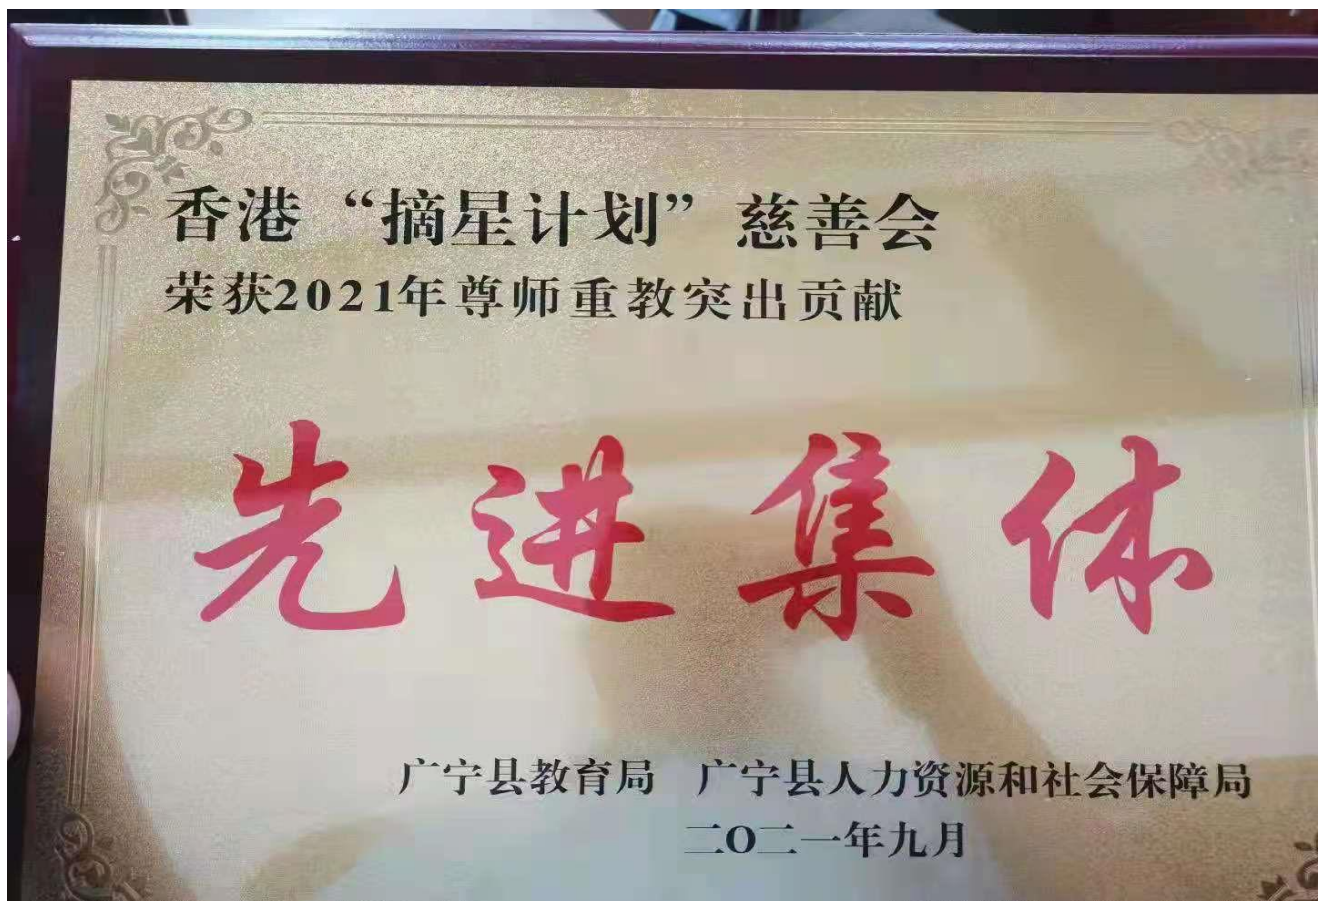 香港“摘星计划”慈善会
荣获2021年尊师重教突出贡献
先进集体
广宁县教育局 广宁县人力资源和社会保障局
二O二一年九月